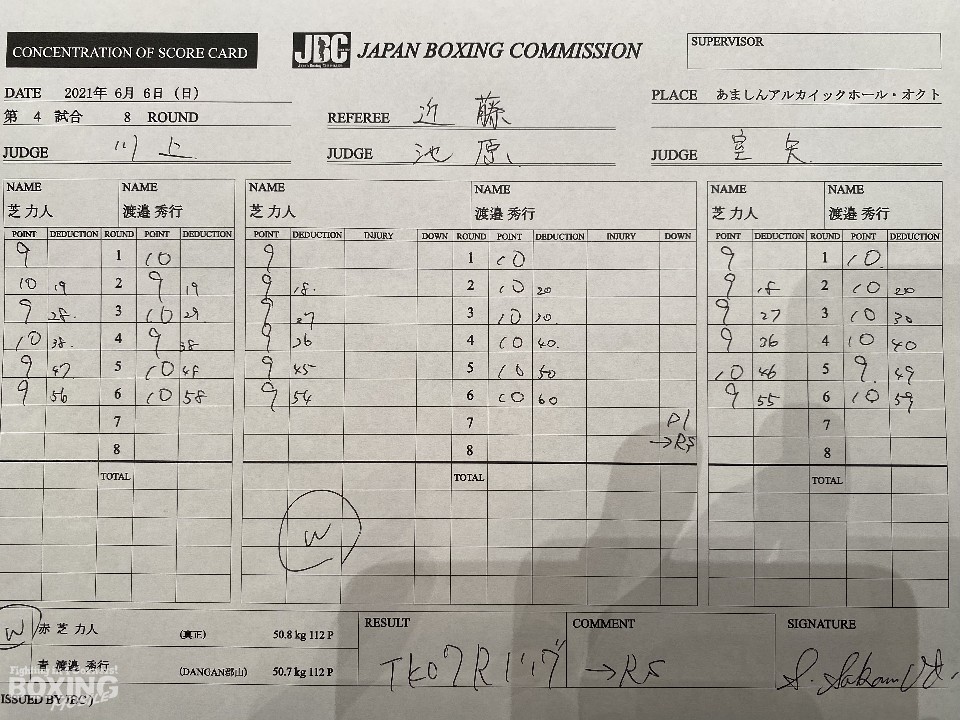 CONCENTRATION OF SCORE CARD
JBC JAPAN BOXING COMMISSION
SUPERVISOR
DATE 2021年 6月 6日 (日)
PLACE あましんアルカイックホール・オクト
第 4 試合 8 ROUND
REFEREE 近藤
JUDGE 川上
JUDGE 池原
JUDGE 室矢
NAME NAME NAME NAME NAME NAME
芝 力人 渡邉 秀行 芝 力人 渡邉 秀行 芝 力人 渡邉 秀行
POINT DEDUCTION ROUND POINT DEDUCTION POINT DEDUCTION INJURY DOWN ROUND POINT DEDUCTION INJURY DOWN POINT DEDUCTION ROUND POINT DEDUCTION
9 1 10 9 1 10 9 1 10
10 19 2 9 19 9 18 2 10 20 9 18 2 10 20
9 28 3 10 29 9 27 3 10 30 9 27 3 10 30
10 38 4 9 38 9 36 4 10 40 9 36 4 10 40
9 47 5 10 48 9 45 5 10 50 10 46 5 9 49
9 56 6 10 58 9 54 6 10 60 9 55 6 10 59
7 7 7
8 8 →RS 8
TOTAL TOTAL TOTAL
W
W 赤 芝 力人 (真正) 50.8 kg 112 P
青 渡邉 秀行 (DANGAN郡山) 50.7 kg 112 P
RESULT
TKO7R
COMMENT
→RS
SIGNATURE
BOXING
ISSUED BY JBC)